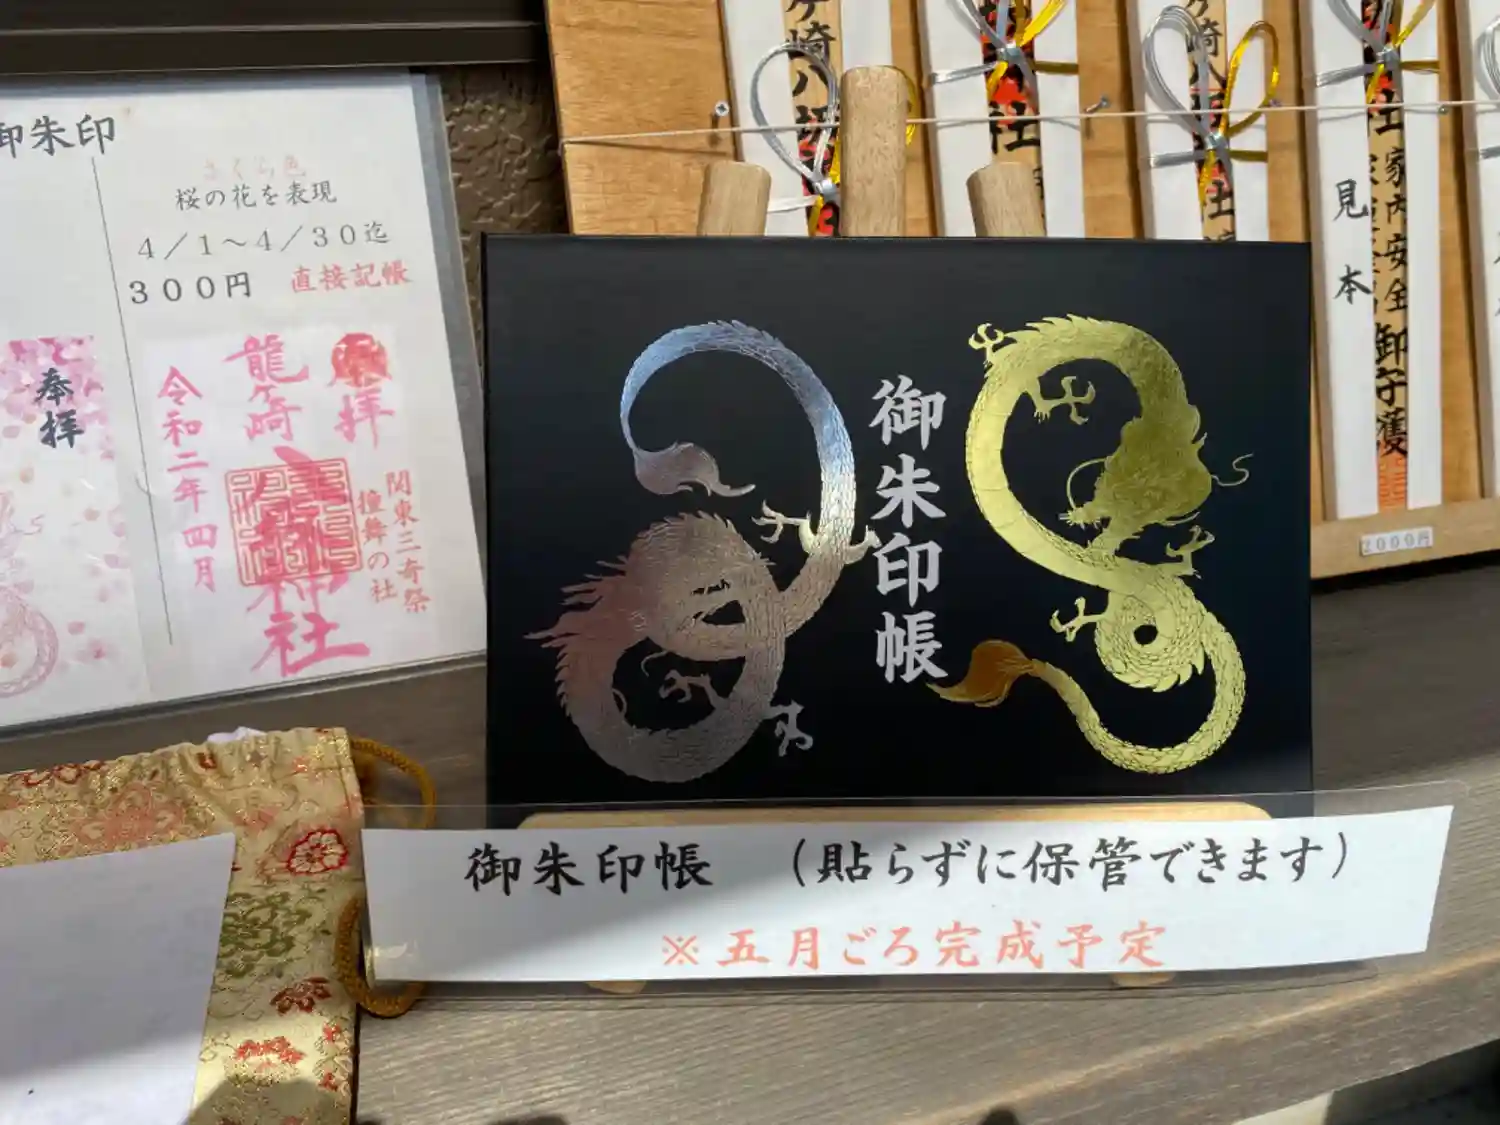 御朱印
さくら色
桜の花を表現
4/1～4/30迄
300円 直接記帳
奉拝
奉拝
龍ヶ崎
八坂神社
令和二年四月
関東三奇祭
撞舞の社
御朱印帳
御朱印帳 (貼らずに保管できます)
※五月ごろ完成予定
ヶ崎八坂
社
崎八
社
社
家内安全御守護
見本
2000円